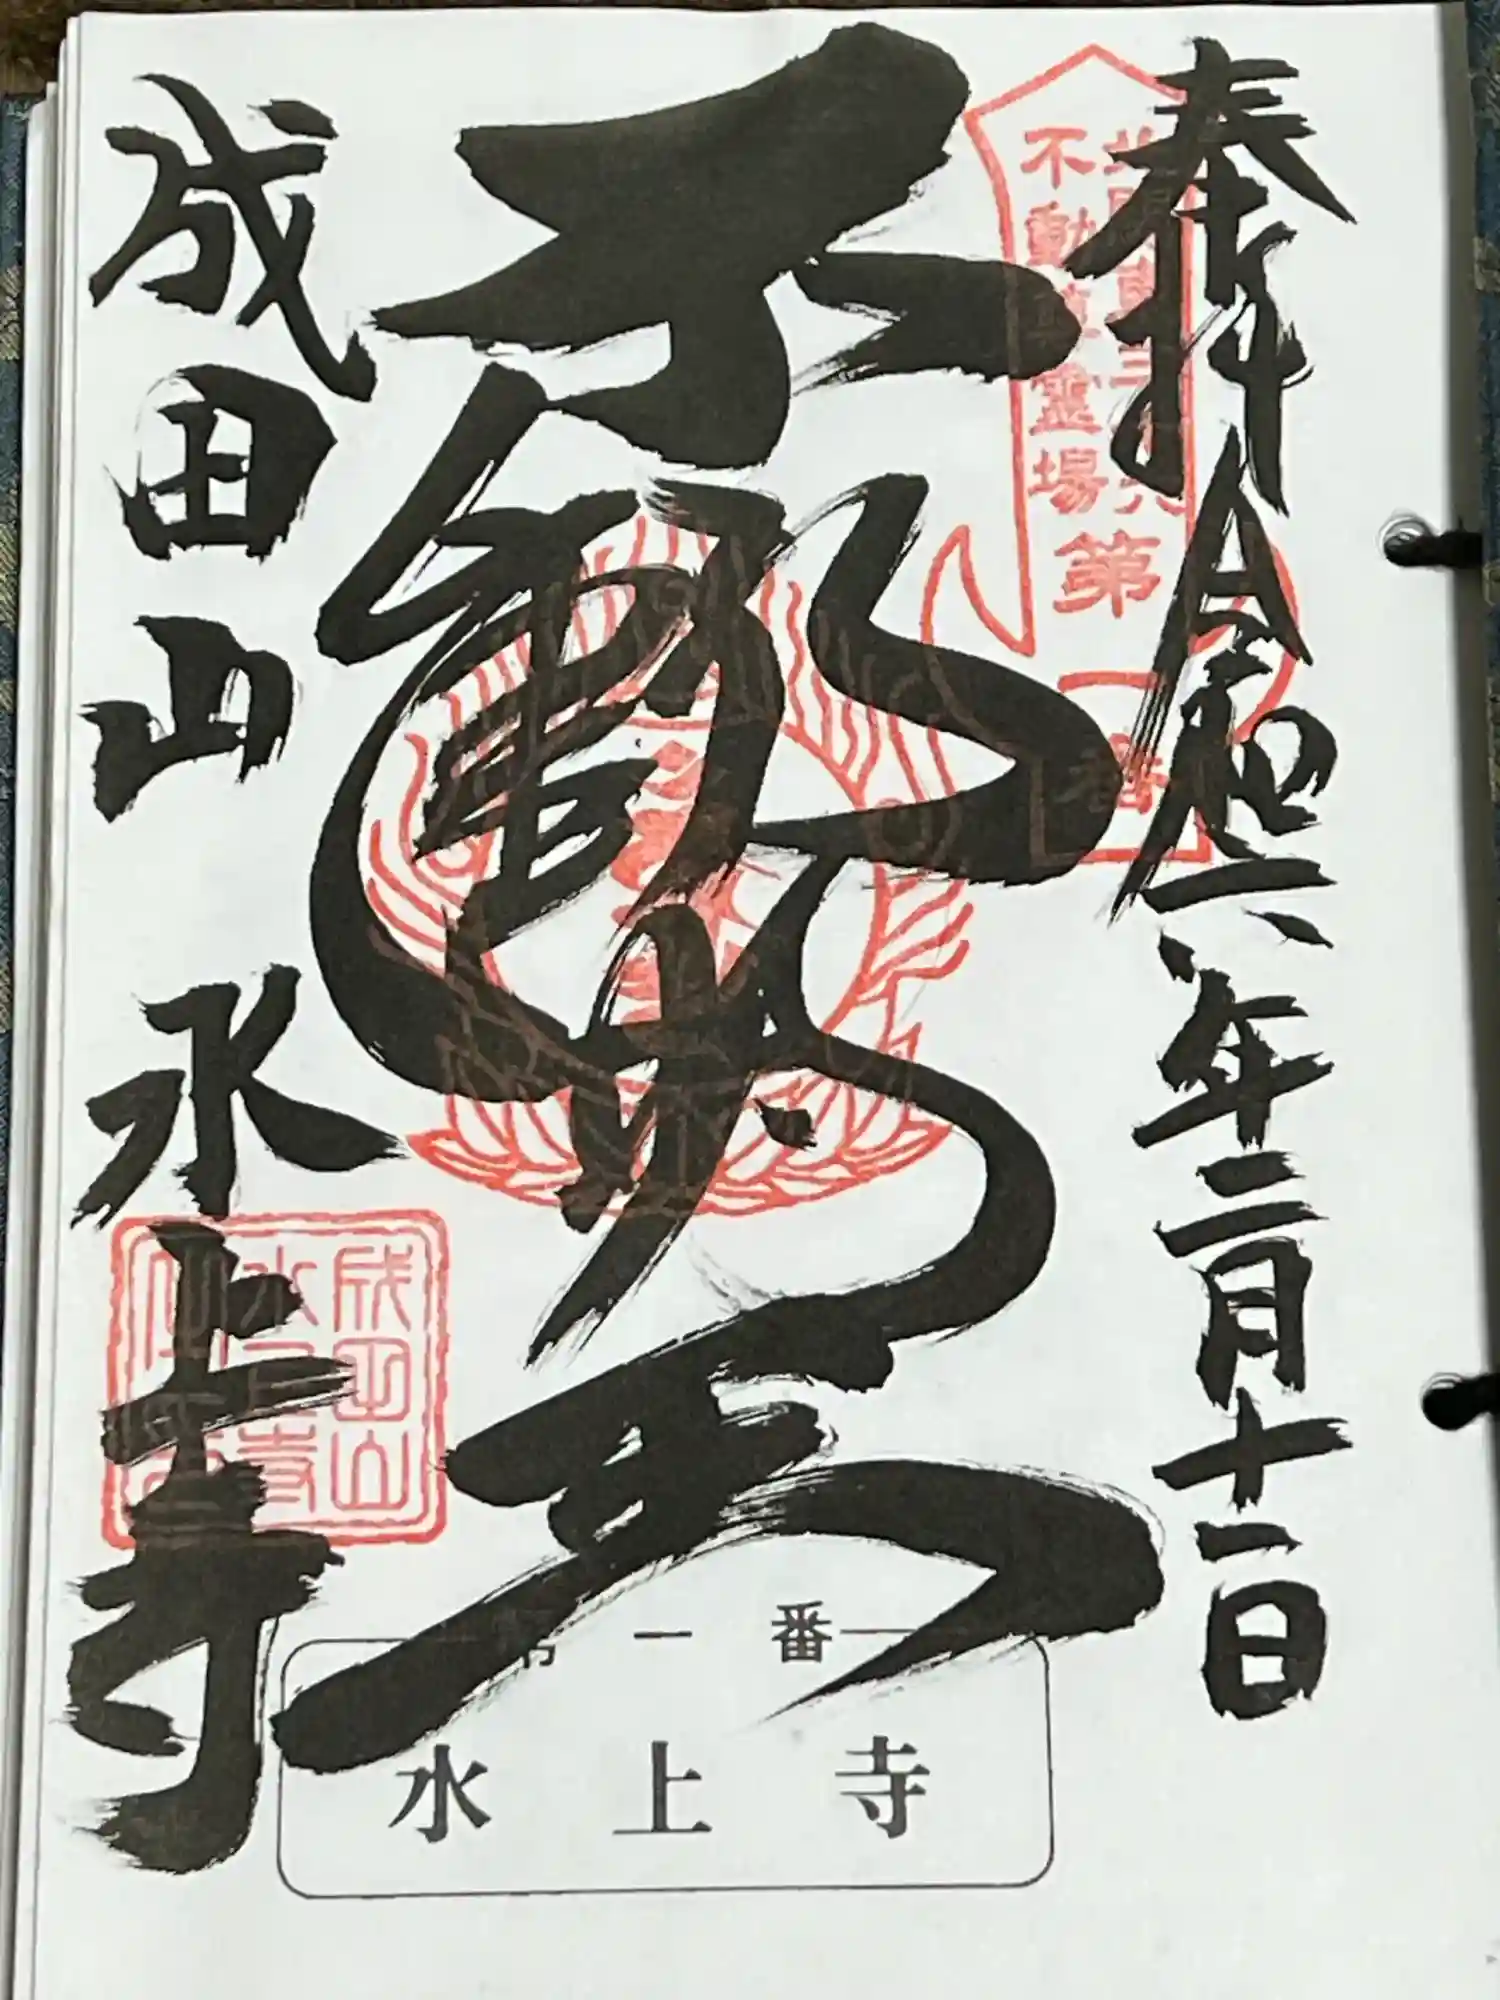 奉拝 令和六年二月十一日
不動明王
成田山 水上寺
不動尊霊場
第一番
成田山
水上寺
第一番
水上寺